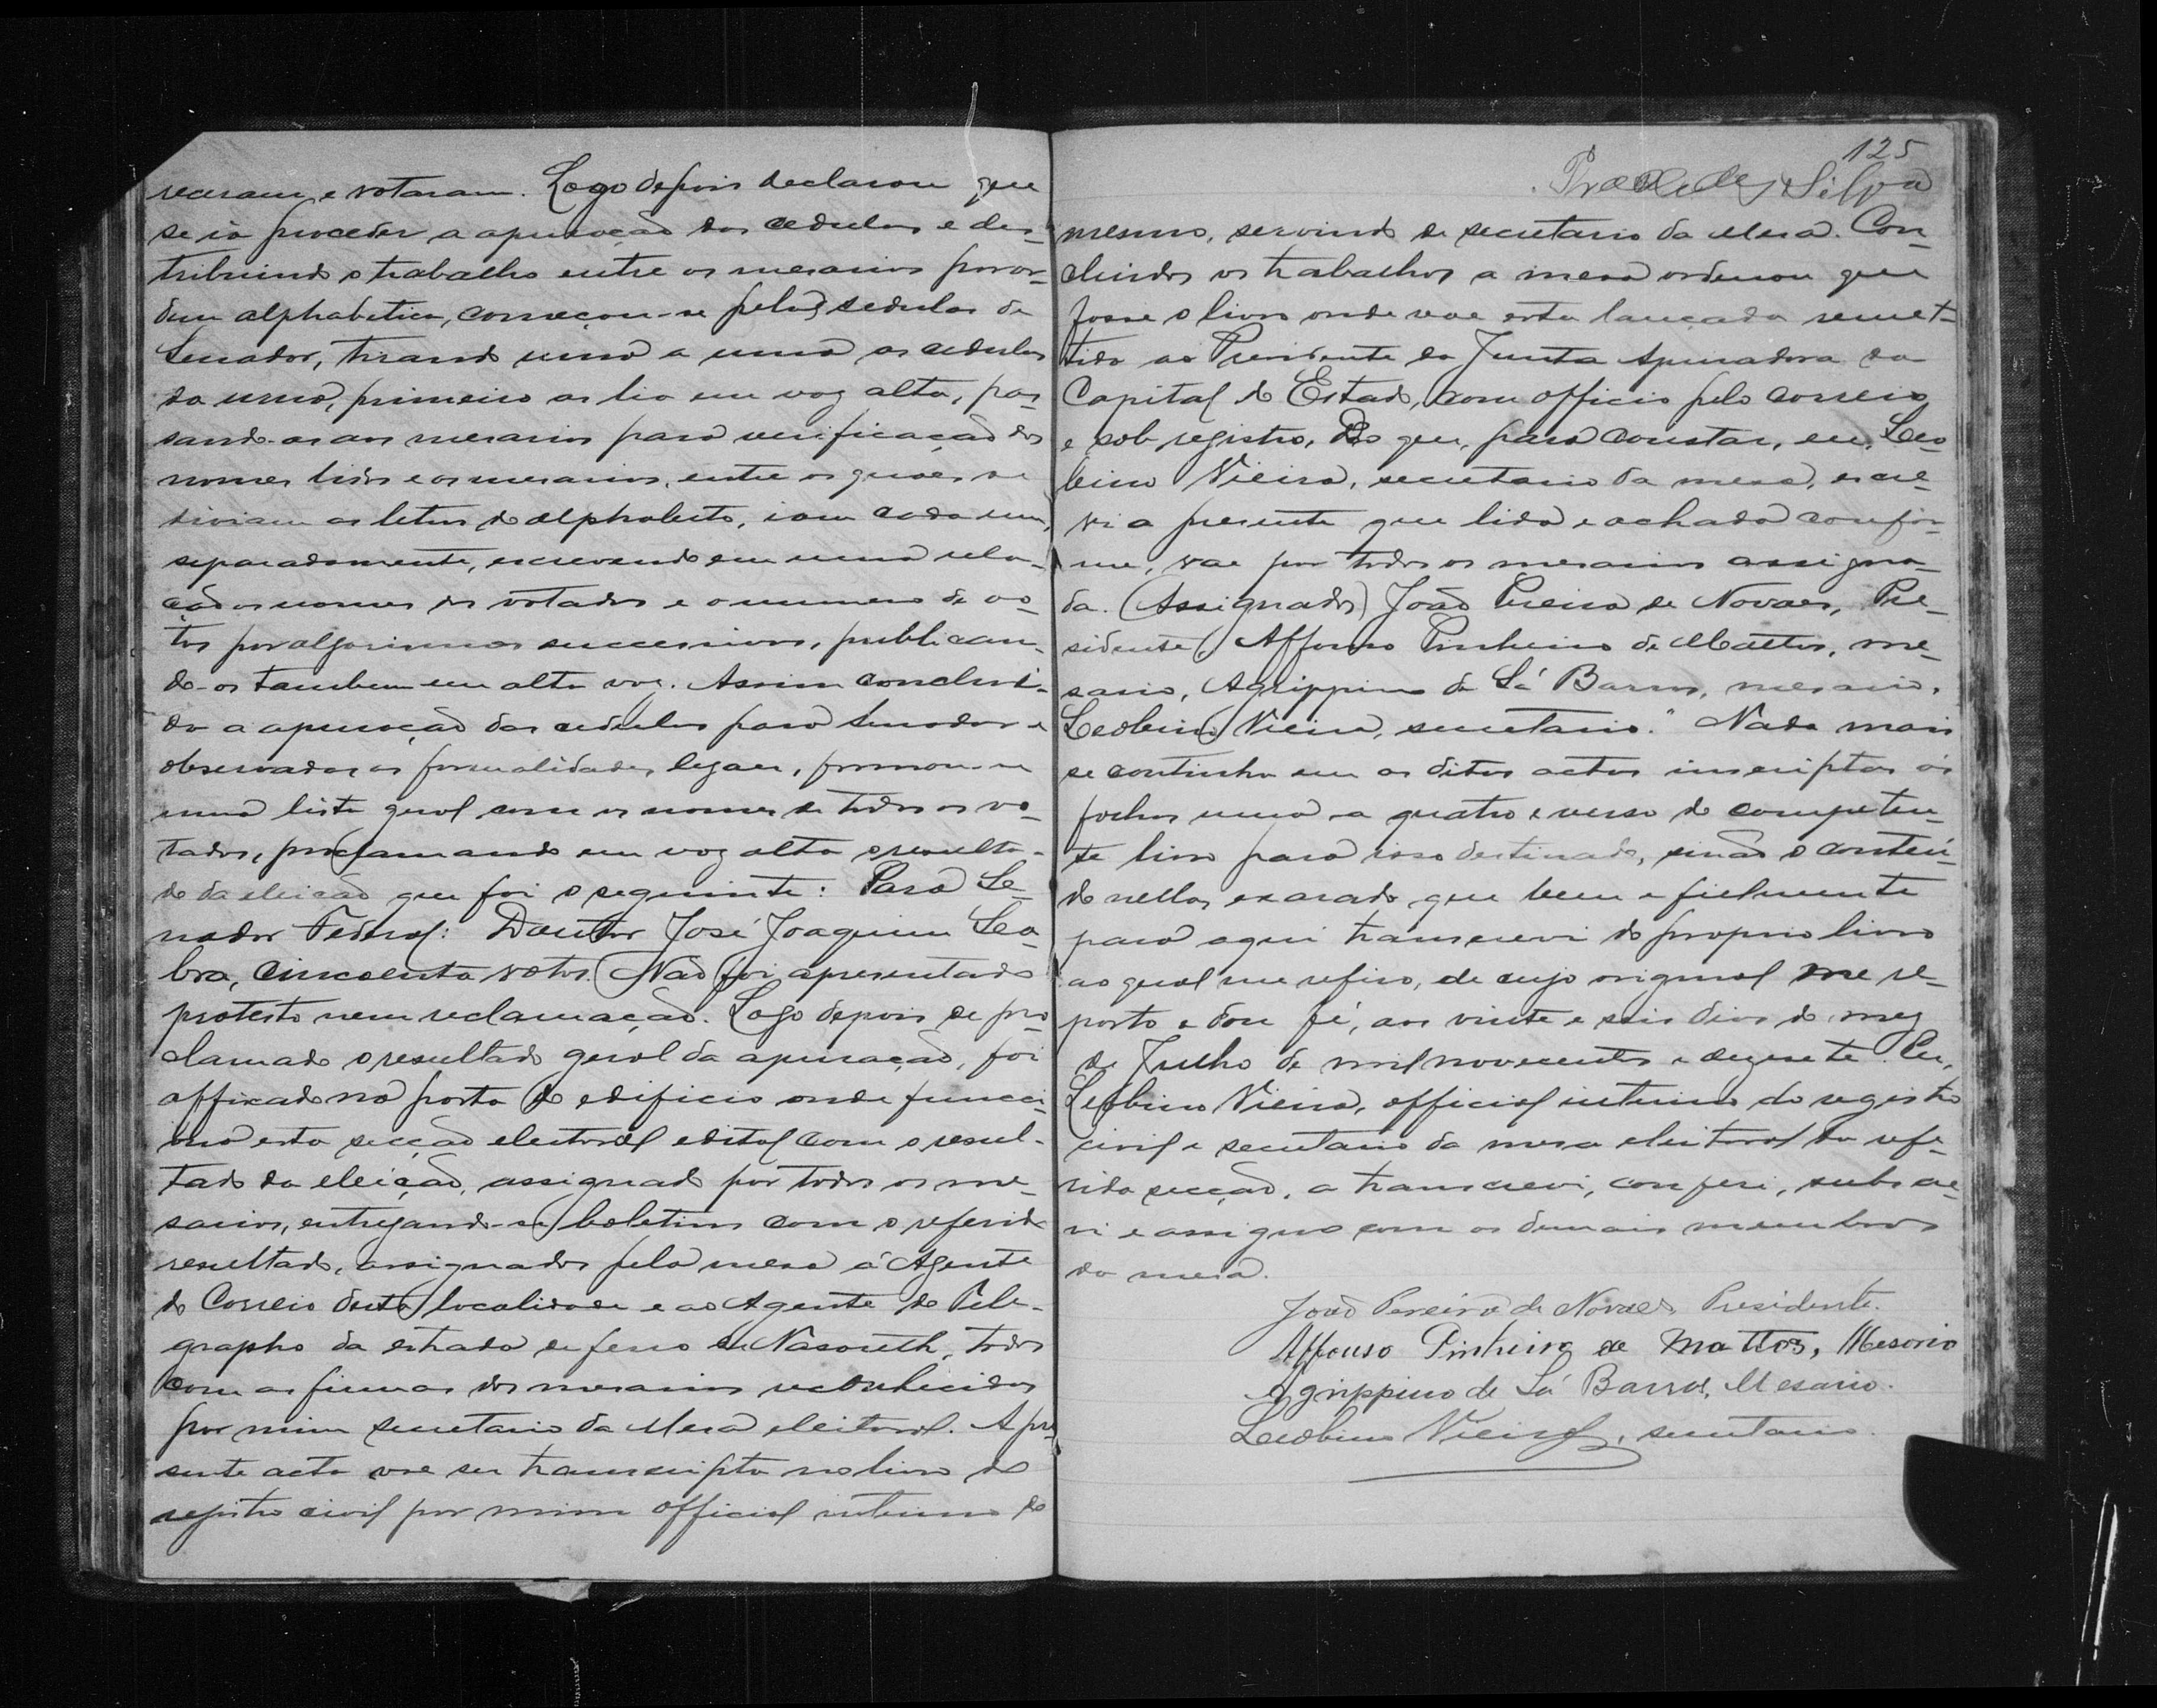 receram e votaram. Logo depois declarou que
se ia proceder a apuração das cedulas e des-
tribuindo o trabalho entre os mesarios por or-
dem alphabetica, começou-se pelas sedulas de
Senador, tirando uma a uma as cedulas
da urna, primeiro as lia em voz alta, pas-
sando-as aos mesarios para verificação dos
nomes lidos e os mesarios, entre os quaes se
diviam as letras do alphabeto, iam cada um,
separadamente, escrevendo em uma rela-
ção os nomes dos votados e o numero de vo-
tos por algarismos successivos, publican-
do-os tambem em alta voz. Assim conclui-
da a apuração das cedulas para Senador e
observadas as formalidades legaes, formou-se
uma lista geral com os nomes de todos os vo-
tados, proclamando em voz alta o resulta-
do da eleição que foi o seguinte: Para Se-
nador Federal: Doutor José Joaquim Sea-
bra, cincoenta votos. Não foi apresentado
protesto nem reclamação. Logo depois de pro-
clamado o resultado geral da apuração, foi
affixado na porta do edificio onde funcci-
ona esta secção eleitoral edital com o resul-
tado da eleição, assignado por todos os me-
sarios, entregando-se boletins com o referido
resultado, assignados pela mesa á Agente
do Correio desta localidade e ao Agente do Tele-
grapho da estrada de ferro de Nasareth, todos
com as firmas dos mesarios reconhecidas
por mim secretario da Mesa eleitoral. A pre-
sente acta vae ser transcripta no livro do
registro civil por mim official interino do
125
Praxedes Silva
mesmo, servindo de secretario da Mesa. Con-
cluidos os trabalhos a mesa ordenou que
fosse o livro onde vae esta lançada remet-
tido ao Presidente da Junta Apuradora da
Capital do Estado, com officio pelo correio
e sob registro, Do que, para constar, eu, Leo-
bino Vieira, secretario da mesa, escre-
vi a presente que lida e achada confor-
me, vae por todos os mesarios assigna-
da. (Assignados) João Pereira de Novaes, Pre-
sidente, Affonso Pinheiro de Mattos, me-
sario, Agrippino de Sá Barros, mesario,
Leobino Vieira, secretario." Nada mais
se continha em as ditas actas inscriptas ás
folhas uma a quatro e verso do competen-
te livro para isso destinado, sinão o conteú-
do nellas exarado que bem e fielmente
para aqui transcrevi do proprio livro
ao qual me refiro, de cujo original me re-
porto e dou fé, aos vinte e seis dias do mez
de Julho de mil novecentos e dezesete. Eu,
Leobino Vieira, official interino do registro
civil e secretario da mesa eleitoral da refe-
rida secção, a transcrevi, conferi, subscre-
vi e assigno com os demais membros
da mesa.
João Pereira de Novaes, Presidente.
Affonso Pinheiro de Mattos, Mesario
Agrippino de Sá Barros, Mesario.
Leobino Vieira, secretario.